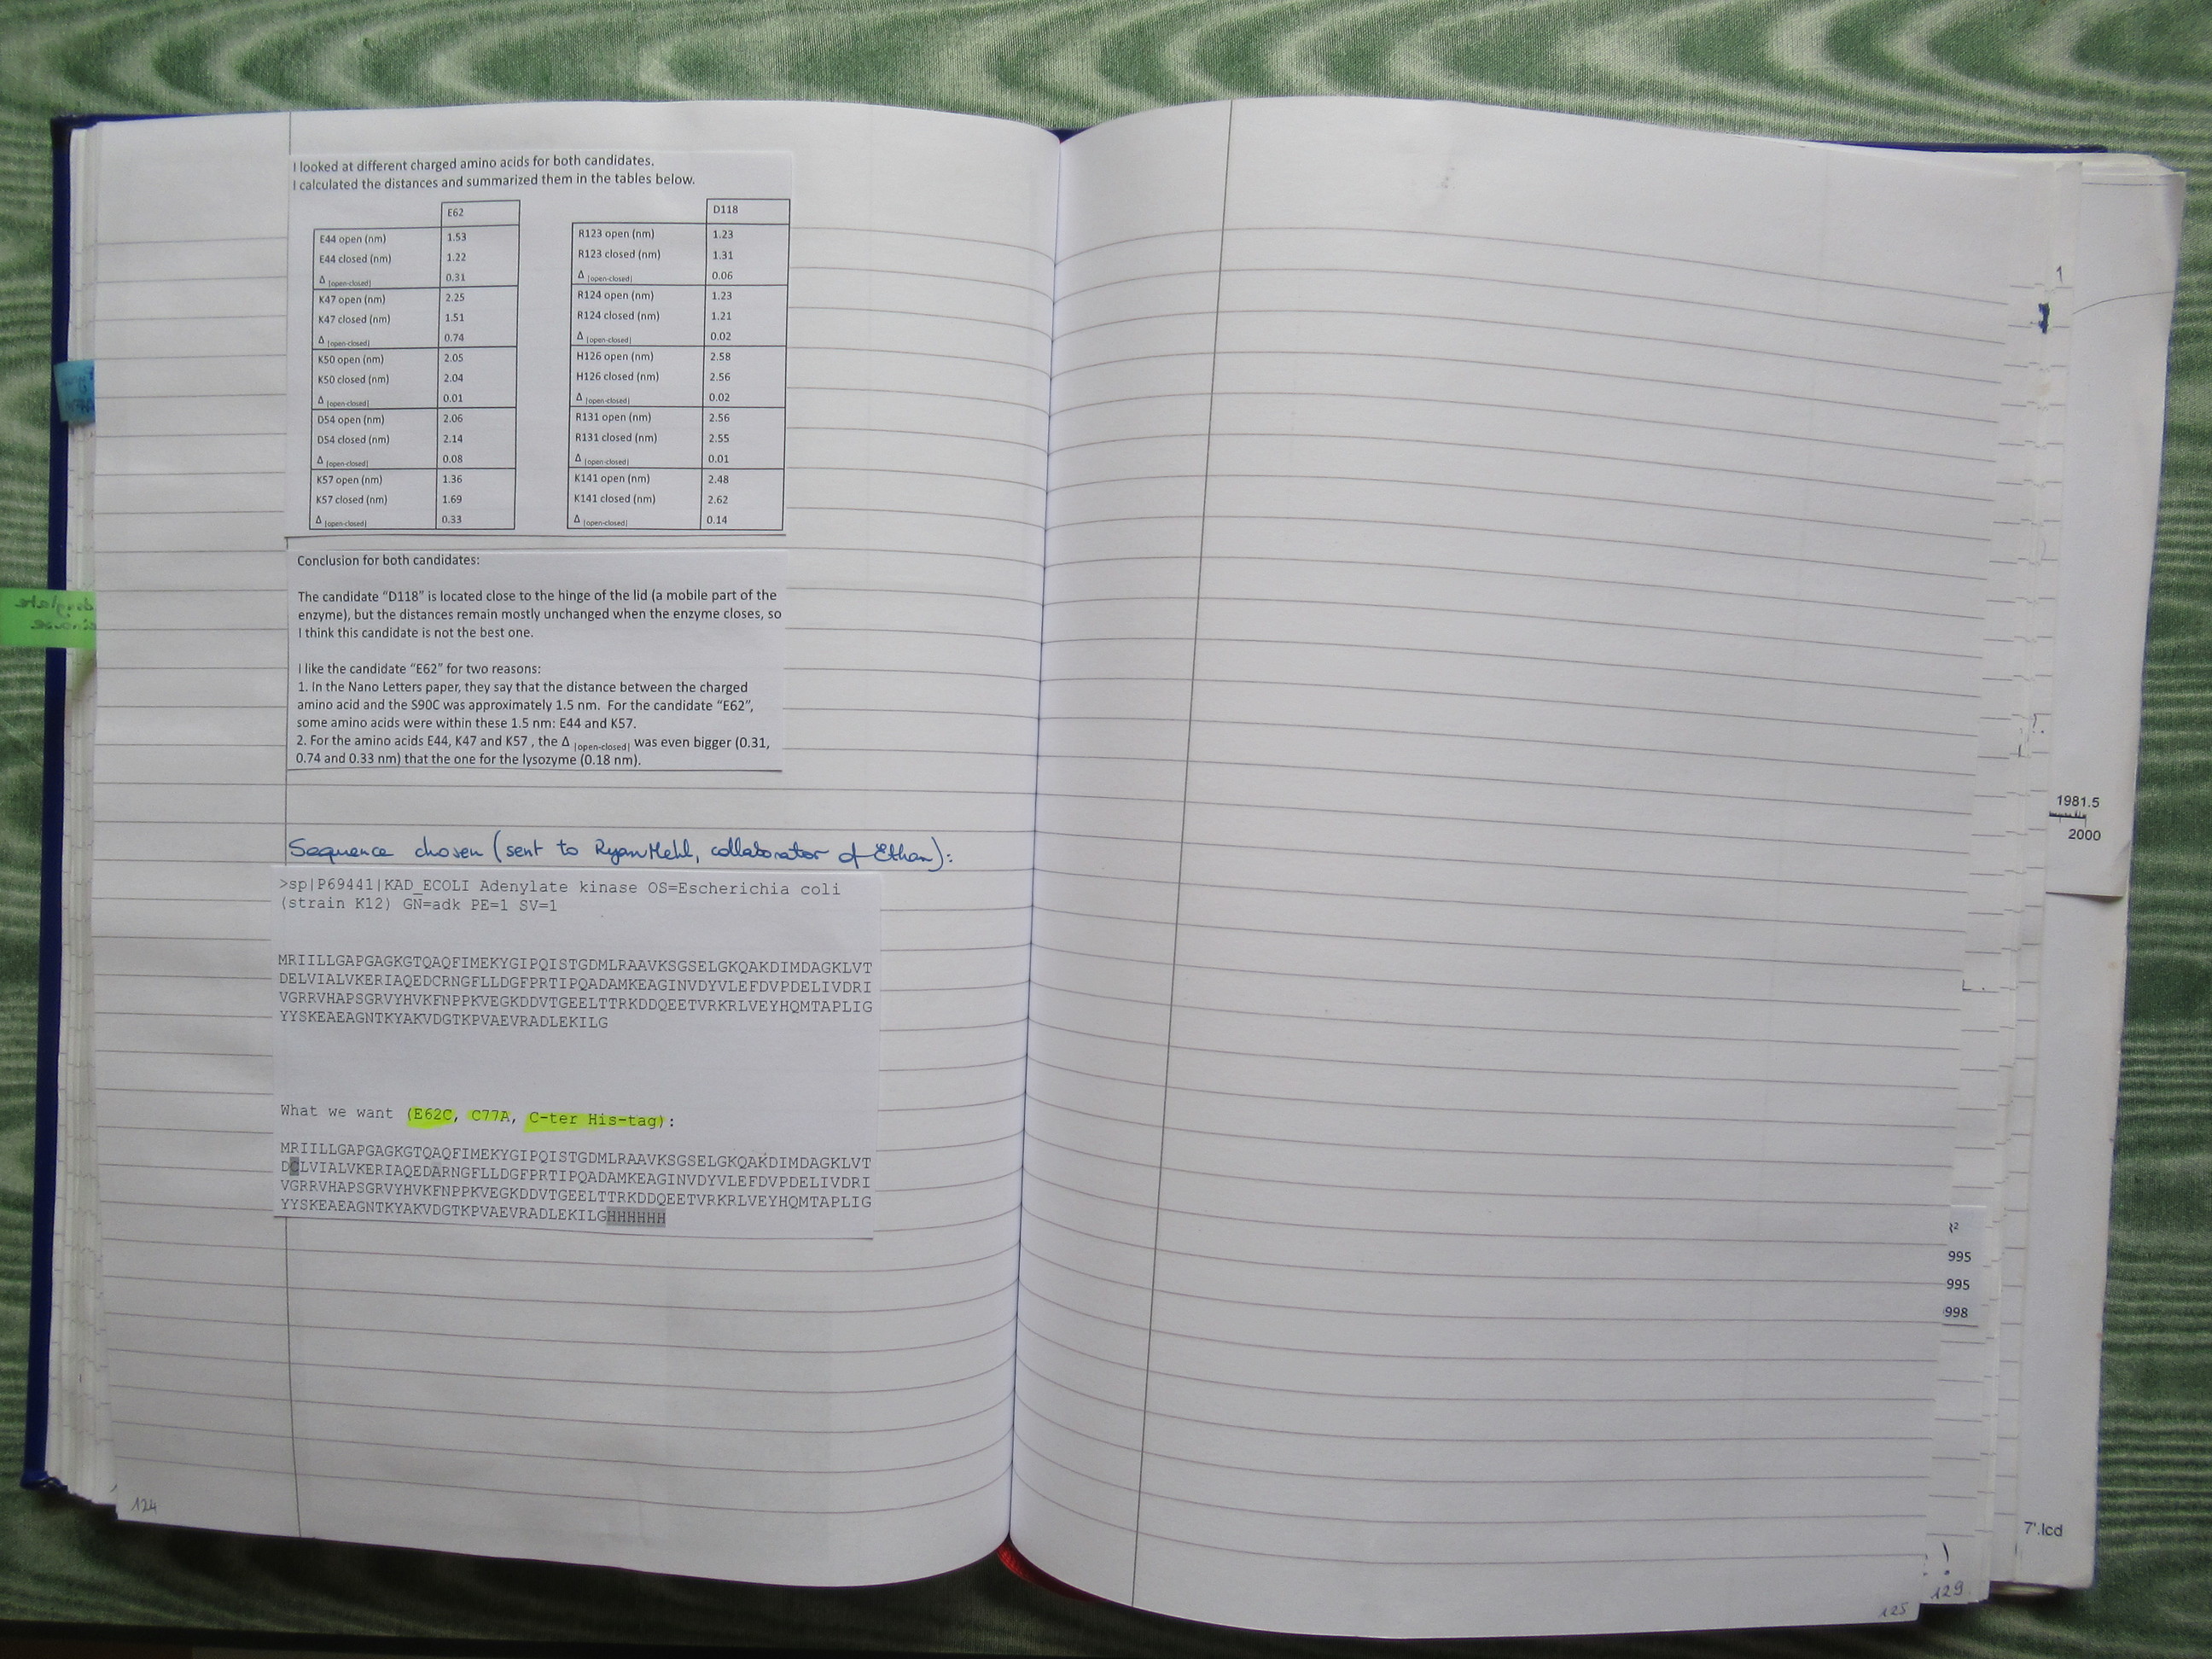 I looked at different charged amino acids for both candidates.
I calculated the distances and summarized them in the tables below.
E62
E44 open (nm) 1.53
E44 closed (nm) 1.22
Δ |open-closed| 0.31
K47 open (nm) 2.25
K47 closed (nm) 1.51
Δ |open-closed| 0.74
K50 open (nm) 2.05
K50 closed (nm) 2.04
Δ |open-closed| 0.01
D54 open (nm) 2.06
D54 closed (nm) 2.14
Δ |open-closed| 0.08
K57 open (nm) 1.36
K57 closed (nm) 1.69
Δ |open-closed| 0.33
D118
R123 open (nm) 1.23
R123 closed (nm) 1.31
Δ |open-closed| 0.06
R124 open (nm) 1.23
R124 closed (nm) 1.21
Δ |open-closed| 0.02
H126 open (nm) 2.58
H126 closed (nm) 2.56
Δ |open-closed| 0.02
R131 open (nm) 2.56
R131 closed (nm) 2.55
Δ |open-closed| 0.01
K141 open (nm) 2.48
K141 closed (nm) 2.62
Δ |open-closed| 0.14
Conclusion for both candidates:
The candidate “D118” is located close to the hinge of the lid (a mobile part of the
enzyme), but the distances remain mostly unchanged when the enzyme closes, so
I think this candidate is not the best one.
I like the candidate “E62” for two reasons:
1. In the Nano Letters paper, they say that the distance between the charged
amino acid and the S90C was approximately 1.5 nm. For the candidate “E62”,
some amino acids were within these 1.5 nm: E44 and K57.
2. For the amino acids E44, K47 and K57 , the Δ |open-closed| was even bigger (0.31,
0.74 and 0.33 nm) that the one for the lysozyme (0.18 nm).
Sequence chosen (sent to Ryan Mehl, collaborator of Ethan):
>sp|P69441|KAD_ECOLI Adenylate kinase OS=Escherichia coli
(strain K12) GN=adk PE=1 SV=1
MRIILLGAPGAGKGTQAQFIMEKYGIPQISTGDMLRAAVKSGSELGKQAKDIMDAGKLVT
DELVIALVKERIAQEDCRNGFLLDGFPRTIPQADAMKEAGINVDYVLEFDVPDELIVDRI
VGRRVHAPSGRVYHVKFNPPKVEGKDDVTGEELTTRKDDQEETVRKRLVEYHQMTAPLIG
YYSKEAEAGNTKYAKVDGTKPVAEVRADLEKILG
What we want (E62C, C77A, C-ter His-tag):
MRIILLGAPGAGKGTQAQFIMEKYGIPQISTGDMLRAAVKSGSELGKQAKDIMDAGKLVT
DCLVIALVKERIAQEDARNGFLLDGFPRTIPQADAMKEAGINVDYVLEFDVPDELIVDRI
VGRRVHAPSGRVYHVKFNPPKVEGKDDVTGEELTTRKDDQEETVRKRLVEYHQMTAPLIG
YYSKEAEAGNTKYAKVDGTKPVAEVRADLEKILGHHHHHH
124
1
1981.5
2000
995
995
998
7'.lcd
!
129
125